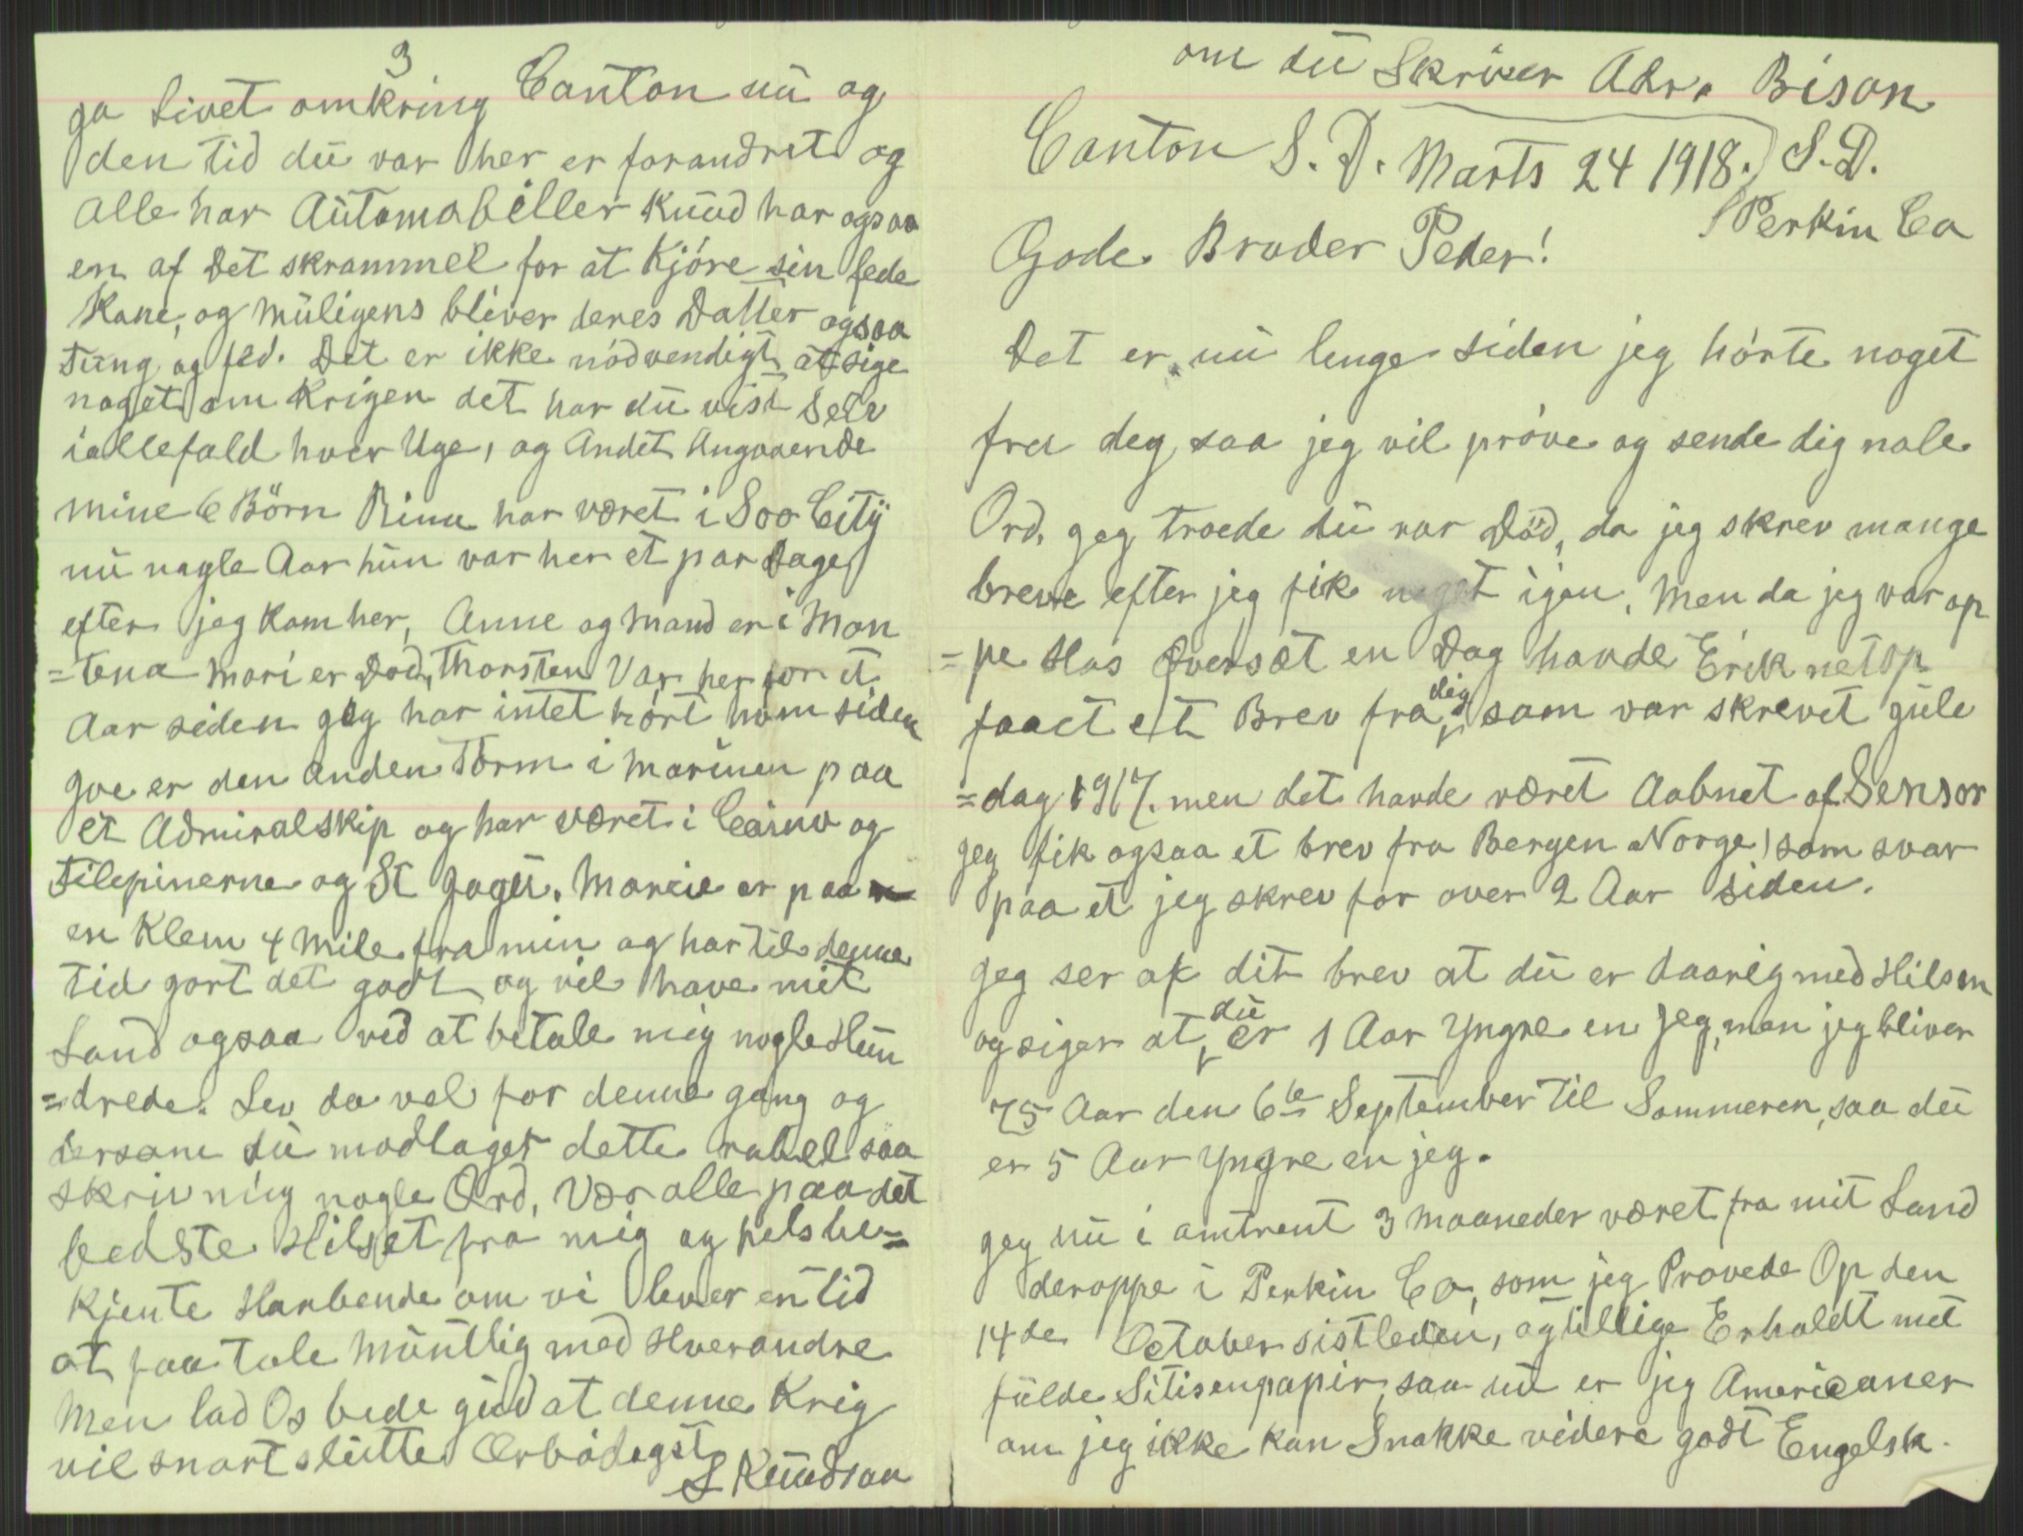 om du Skriver Adr. Bison
S. D.
Perkin Co
Canton S. D. Marts 24 1918.
Gode Broder Peder!
Det er nu lenge siden jeg hörte noget
fra deg, saa jeg vil pröve og sende dig nole
Ord. Jeg troede du var Död, da jeg skrev mange
breve efter jeg fik noget igen. Men da jeg var op
=pe Hos Oversæt en Dag havde Erik netop
faaet et Brev fra dig som var skrevet jule
=dag 1917. men det havde været Aabnet af Sensor
jeg fik ogsaa et brev fra Bergen Norge, som svar
paa et jeg skrev for over 2 Aar siden.
Jeg ser af dit brev at du er daarlig med Hilsen
og siger at du er 1 Aar Yngre en Jeg, men jeg bliver
75 Aar den 6te September til Sommeren, saa du
er 5 Aar Yngre en jeg.
Jeg nu i omtrent 3 Maaneder været fra mit Land
deroppe i Perkin Co, som jeg Provede Op den
14de October sistleden, og tillige Erholdt mit
fulde Sitisenpapir, saa nu er jeg Americaner
om jeg ikke kan Snakke videre godt Engelsk.
3
Ja Livet omkring Canton nu og
den tid du var her er forandret og
alle har Automobiller Knud har ogsaa
en af Det skrammel for at Kjöre sin fede
Kone, og Muligens bliver deres Datter ogsaa
Tung og fed. Det er ikke nödvendigt at sige
noget om Krigen det har du vist Selv
iallefald hver Uge, og Andet Angaaende
mine 6 Börn Rina har været i Soo City
nu nogle Aar hun var her et par Dage
efter jeg kom her, Anne og Mand er i Mon
=tena Mari er Död, Thorsten Var her for et
Aar siden jeg har intet hört hom siden
Joe er den anden Term i Marinen paa
et Admiralskip og har været i Cainv og
Filepinerne og St Jagu. Marcie er paa
en Klem 4 Mile fra min og har til denne
tid gort det godt og vil have mit
Land ogsaa ved at betale mig nogle Hun
=drede. Lev da vel for denne gang og
dersom du modtager dette rabel saa
skriv mig nogle Ord. Vær alle paa det
bedste Hilset fra mig og fels be=
kjente Harbende om vi lever en tid
at faa tale Muntlig med Hverandre
Men lad Os bede gud at denne Krig
vil snart slutte Ærbödigst
L Knudson